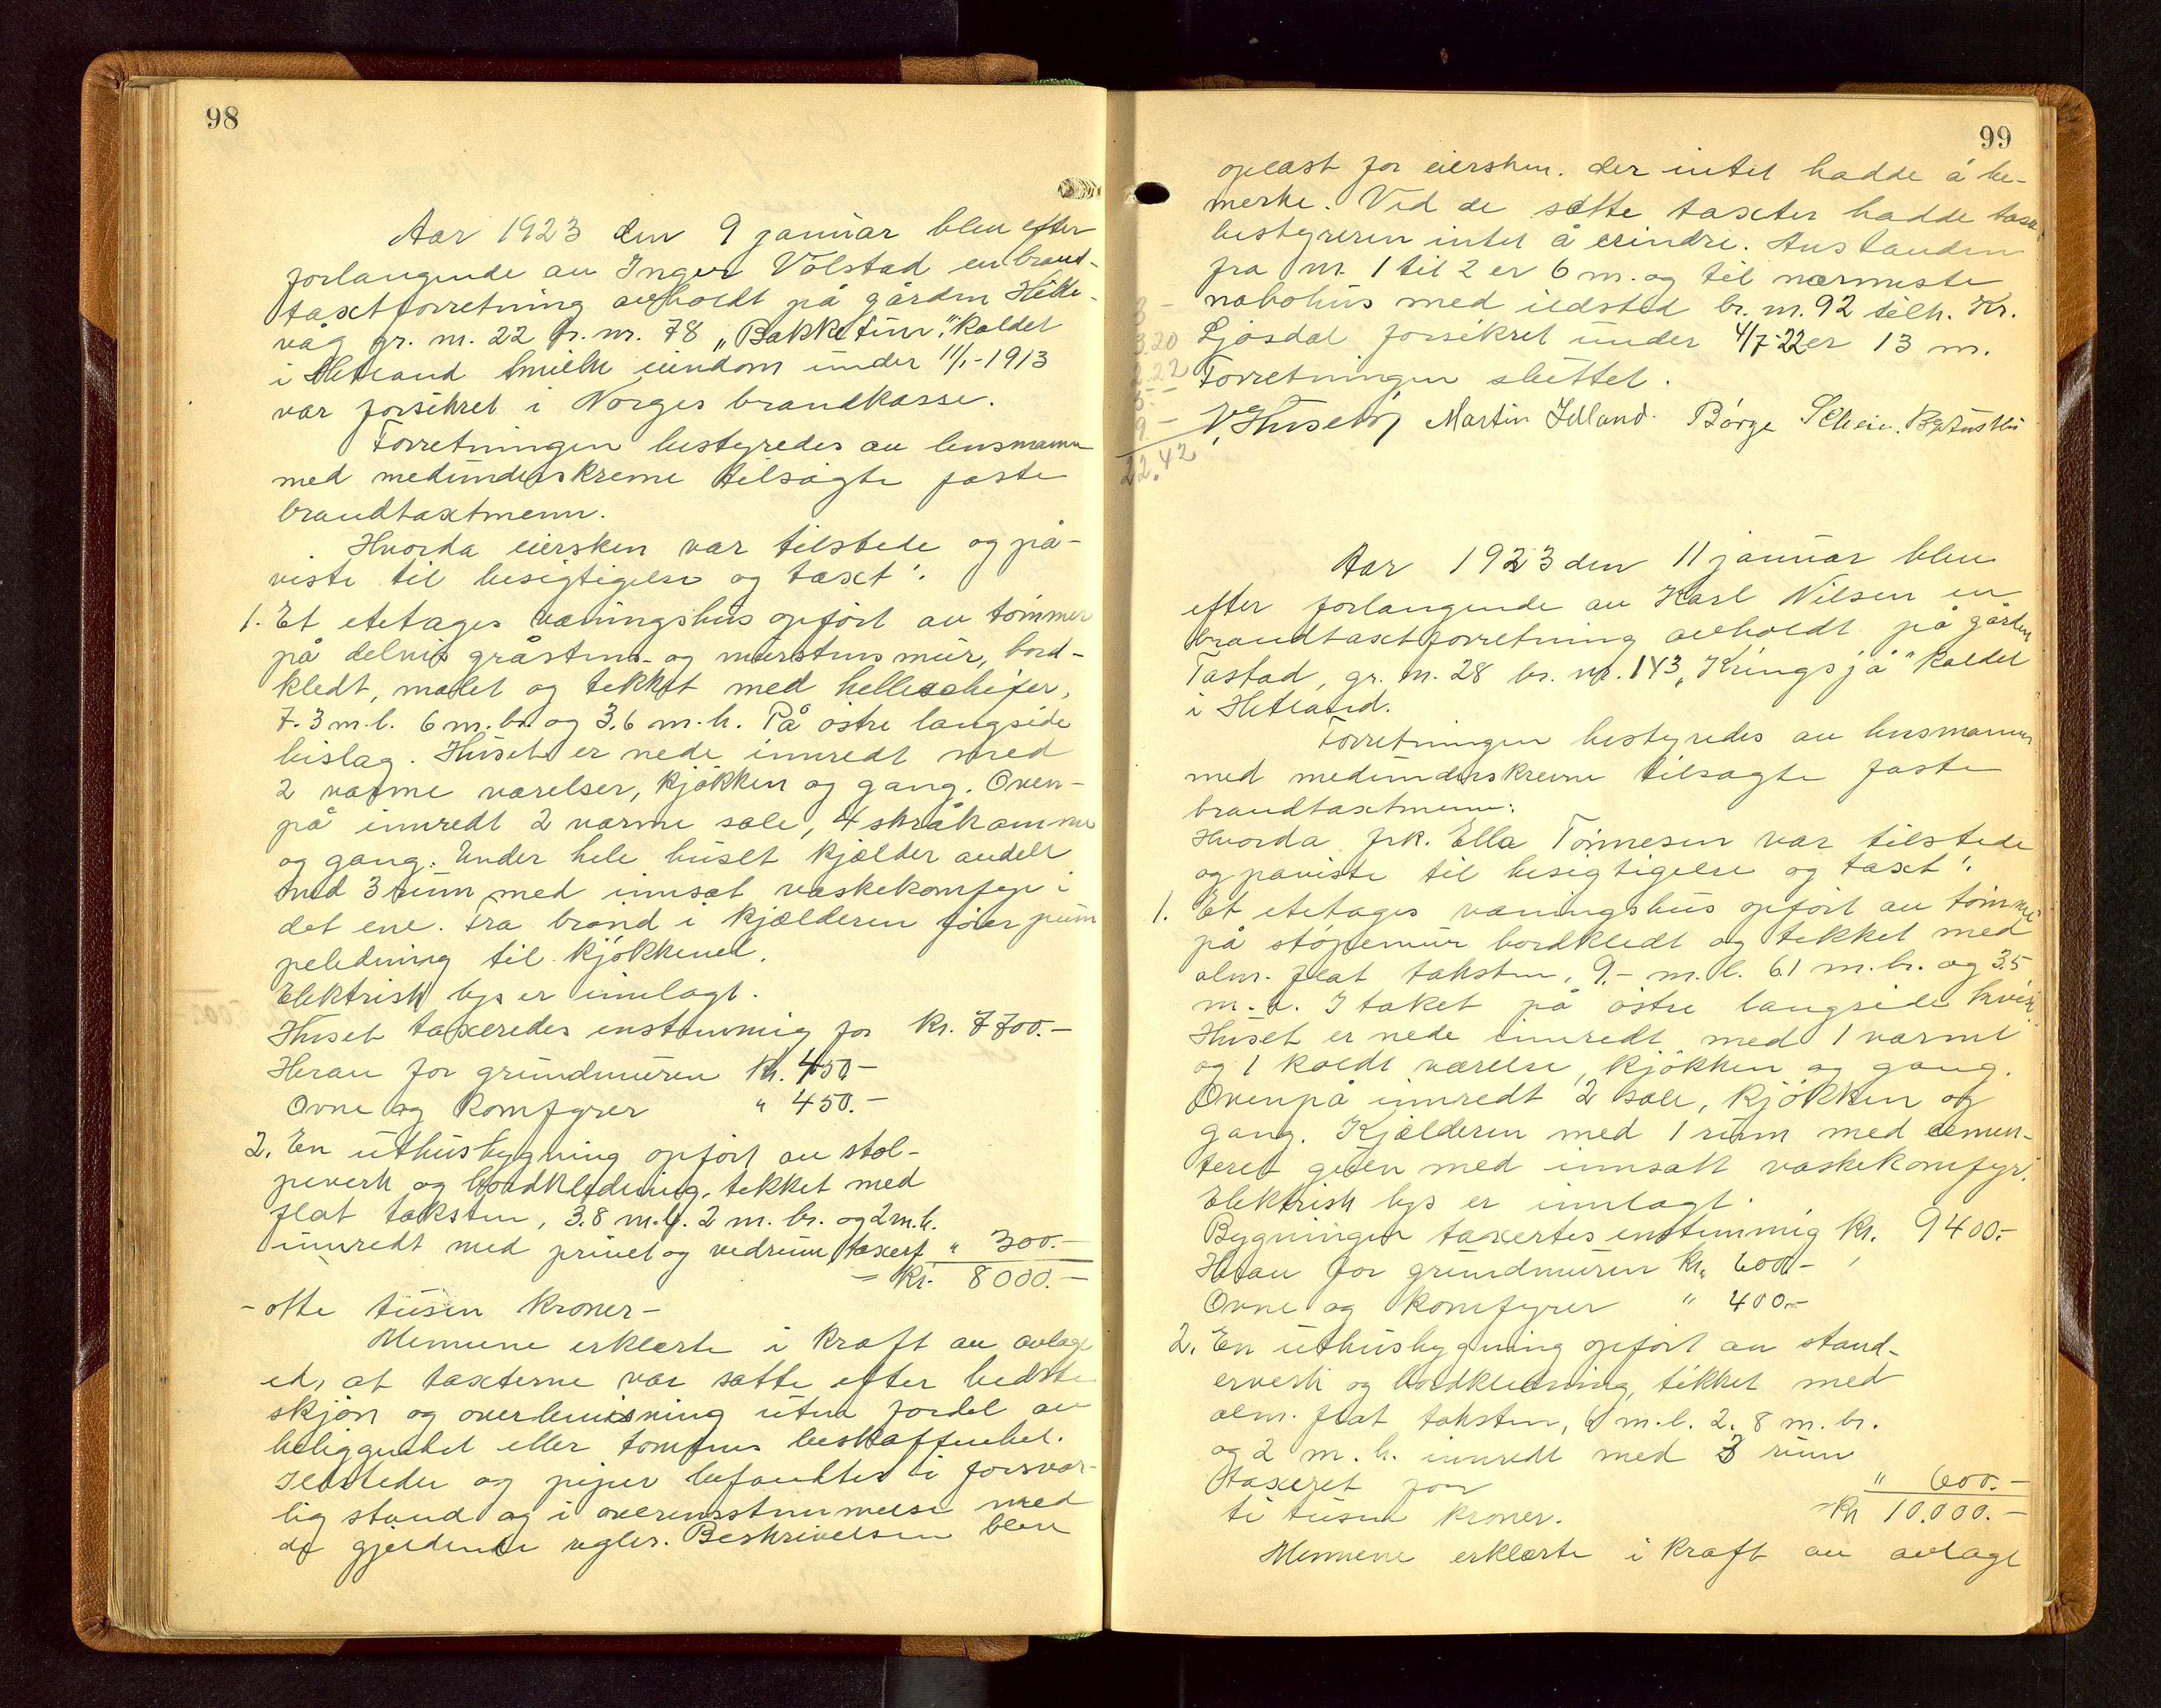 98
Aar 1923 den 9 januar blev efter
forlangende av Inger Völstad en brand-
taxtforretning avholdt på gården Hille-
våg gr. nr. 22 br. nr. 78 „Bakketun" kaldet
i Hetland hvilke eiendom under 11/1-1913
var forsikret i Norges brandkasse.
Forretningen bestyredes av lensmann
med medunderskrevne tilsagte faste
brandtaxtmenn.
Hvorda eiersken var tilstede og på-
viste til besigtigelse og taxt:
1. Et etetages våningshus opfört av tömmer
på delvis gråstens- og murstensmur, bord-
kledt, malet og tekket med helleschifer,
7.3 m.l. 6 m.br og 3.6 m.h. På östre langside
bislag. Huset er nede innredt med
2 varme værelser, kjökken og gang. Oven-
på innredt 2 varme sale, 4 skråkammer
og gang. Under hele huset kjælder avdelt
med 3 rum med innsat vaskekomfyr i
det ene. Fra brönd i kjælderen förer pum
peledning til kjökkenet.
Elektrisk lys er innlagt.
Huset taxeredes enstemmig for Kr. 7700.-
Herav for grundmuren Kr. 450-
Ovne og Komfyrer " 450.-
2. En uthusbygning opfört av stol-
peverk og bordkledning, tekket med
flat taksten, 3.8 m.l. 2 m. br. og 2 m.h.
innredt med privet og vedrum, taxert " 300.-
= Kr. 8000.-
- otte tusen kroner-
Mennene erklærte i kraft av avlagt
ed, at taxterne var satte efter bedste
skjön og overbevisning uten fordel av
beliggenhet eller tomtens beskaffenhet.
Ildsteder og piper befandtes i forsvar-
lig stand og i overensstemmelse med
de gjældende regler. Beskrivelsen blev
99
oplæst for eiersken. der intet hadde å be-
merke. Ved de satte taxter hadde taxt
bestyreren intet å erindre. Avstanden
fra nr. 1 til 2 er 6 m. og til nærmeste
nabohus med ildsted br. nr. 92 tilh. Kr.
Ljosdal forsikret under 4/7-22 er 13 m.
Forretningen sluttet.
3 -
3.20
2.22
5.-
9.-
22.42
V. Husebö Martin Idland. Börge Scheie.
Aar 1923 den 11 januar blev
efter forlangende av Karl Nilsen en
brandtaxtforretning avholdt på gården
Tastad, gr. nr. 28 br. nr. 143 „Kringsjå" kaldet
i Hetland.
Forretningen bestyredes av lensmannen
med medunderskrevne tilsagte faste
brandtaxtmenn:
Hvorda frk. Ella Tönnesen var tilstede
og påviste til besigtigelse og taxt:
1. Et etetages våningshus opfört av tömmer
på stöpemur bordkledt og tekket med
alm. flat taksten, 9.- m.l. 6.1 m.br. og 3.5
m.h. I taket på östre langside kvist.
Huset er nede innredt med 1 varmt
og 1 koldt værelse, kjökken og gang.
Ovenpå innredt 2 sale, kjökken og
gang. Kjælderen med 1 rum med cemen-
teret gulv med innsatt vaskekomfyr.
Elektrisk lys er innlagt.
Bygningen taxertes enstemmig Kr. 9400.-
Herav for grundmuren Kr. 600.-
Ovne og komfyrer " 400.-
2. En uthusbygning opfört av stend-
erverk og bordkledning, tekket med
alm. flat taksten, 6 m.l. 2.8 m.br.
og 2 m.h. innredt med 3 rum
taxeret for " 600.-
ti tusen kroner. = Kr 10.000.-
Mennene erklærte i kraft av avlagt